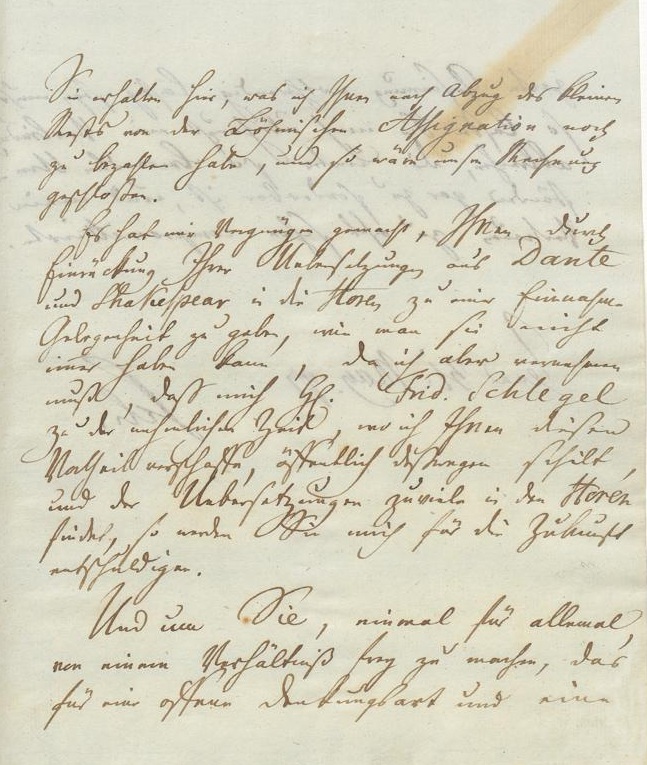 Sie erhalten hier, was ich Ihnen nach Abzug des kleinen
Rests von der Böhmischen Assignation noch
zu bezahlen habe, und so wäre unsre Rechnung
geschloßen.
Es hat mir Vergnügen gemacht, Ihnen durch
Einrückung Ihrer Uebersetzungen aus Dante
und Shakespear in die Horen zu einer Einnahme
Gelegenheit zu geben, wie man sie nicht
immer haben kann, da ich aber vernehmen
muß, daß mich Hh. Frid. Schlegel
zu der nehmlichen Zeit, wo ich Ihnen diesen
Vortheil verschaffe, öffentlich deßwegen schilt,
und der Uebersetzungen zuviele in den Horen
findet, so werden Sie mich für die Zukunft
entschuldigen.
Und um Sie, einmal für allemal,
von einem Verhältniß frey zu machen, das
für eine offene Denkungsart und eine